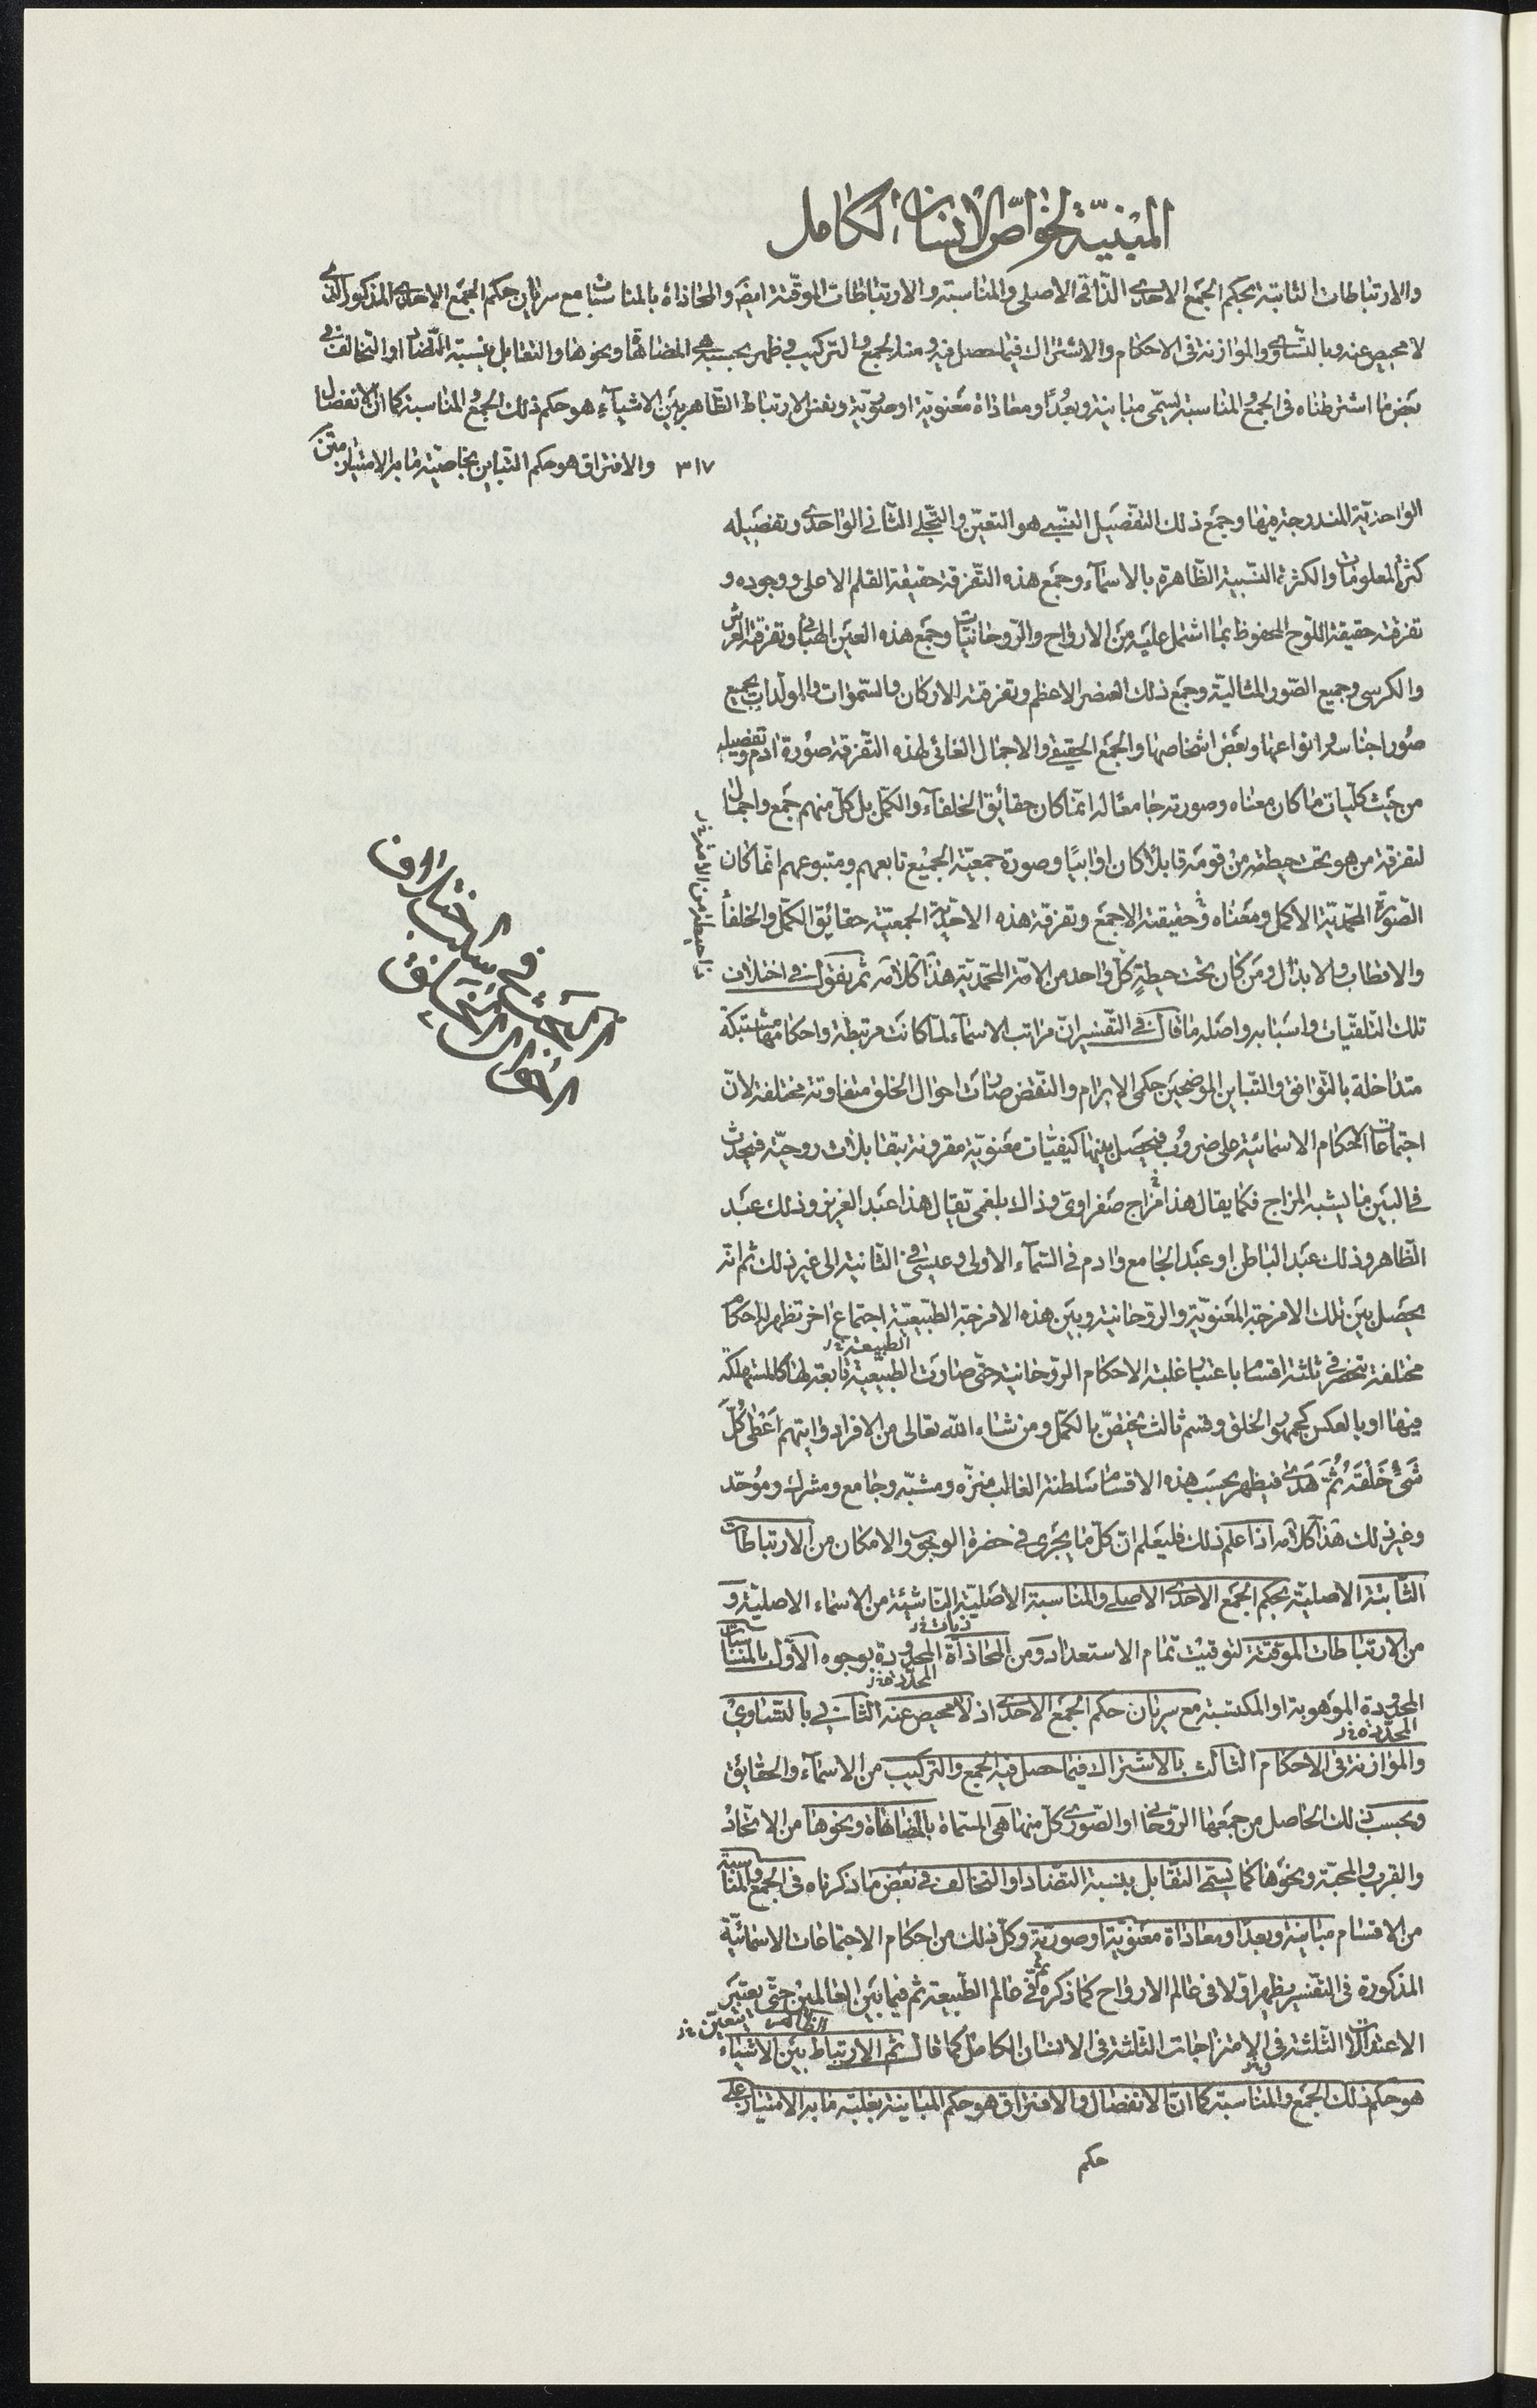 المبنيّة لخواصّ الانسان الكامل
والارتباطات الثابتة بحكم الجمع الاحدى الذّاتى الاصلى والمناسبة والارتباطات الموقّتة ايضَ والمحاذاة بالمناسبات مع سريان حكم الجمع الاحدى المذكور الذى
لا محيص عنه وبالتساوى والموازنة فى الاحكام والاشتراك فيما حصل فيه ومنه الجمع والتركيب وظهر بحسبه هى المضاهاة ونحوها والتقابل بنسبة التّضاد او التخالف فى
بعض ما اشترطناه فى الجمع والمناسبة يسمّى مباينة وبُعدًا ومعاداة معنويّة او صوريّة ونفس الارتباط الظّاهر بين الاشياء هو حكم ذلك الجمع والمناسبة كما انّ الانفصال
٣١٧ والافتراق هو حكم التّباين بخاصيّة ما به الامتياز متن
الواحديّة المندرجة فيها وجمع ذلك التفصيل الغيبى هو التعيّن والتجلى الثّانى الواحدى وتفصيله
كثرة المعلومات والكثرة النسبية الظّاهرة بالاسمآء وجمع هذه التفرقة حقيقة القلم الاعلى ووجوده و
تفرقته حقيقة اللّوح المحفوظ بما اشتمل عليه من الارواح والرّوحانيّات وجمع هذه العين الهبائى وتفرقته العرش
والكرسى وجميع الصّور المثاليّة وجمع ذلك العنصر الاعظم وتفرقته الاركان والسّموات والمولّدات بجميع
صُور اجناسها وانواعها وبعض اشخاصها والجمع الحقيقى والاجمال الغائى لهذه التفرقة صُورة ادم وتفصيله
من حيث كلّيات ما كان معناه وصورته جامعًا له انّما كان حقائق الخلفآء والكمّل بل كلّ منهم جمع واجمال
لتفرقة من هو تحت حيطته من قومه قابلًا كان او ابيًا وصورة جمعيّة الجميع تابعهم ومتبوعهم انّما كان
الصّورة المحمّديّة الاكمل ومعناه وحقيقته الاجمع وتفرقة هذه الاحديّة الجمعيّة حقائق الكمّل والخلفآء
والاقطاب والابدال ومن كان تحت حيطةِ كلّ واحد من الامّة المحمّديّة هذا كلامه ثم نقول فى اختلاف
تلك التّلقيّات واسبابه واصله ما قال فى التفسير انّ مراتب الاسمآء لمّا كانت مرتبطة واحكامها مشتبكة
متداخلة بالتّوافق والتّباين الموضحين حكمى الابرام والنّقض صارت احوال الخلق متفاوتة مختلفة لانّ
اجتماعات الاحكام الاسمائية على ضروب فيحصل بينها كيفيّات معنويّة مقرونة بتقابلات روحيّة فيحدث
فى البين ما يشبه المزاج فكما يقال هذا مزاج صفراوىّ وذاك بلغمى يقال هذا عبد العزيز وذلك عبد
الظّاهر وذلك عبد الباطن او عبد الجامع وادم فى السّمآء الاولى وعيسى فى الثّانية الى غير ذلك ثم انّه
يحصل بين تلك الامزجة المعنويّة والروحانية وبين هذه الامزجة الطّبيعيّة اجتماع اخر تظهر له احكام
الطبيعة
مختلفة تنحصر فى ثلثة اقسام باعتبار غلبة الاحكام الرّوحانية حتى صارت الطبيعية تابعة لها كالمستهلكة
فيها او بالعكس كجمهور الخلق وقسم ثالث يختصّ بالكمّل ومن شاء الله تعالى من الافراد وايتهم اَعْطى كُلَّ
شَىْءٍ خَلْقَهُ ثُمَّ هَدى فيظهر بحسب هذه الاقسام سلطنة الغالب منزّه ومشبّه وجامع ومشرك وموُحّد
وغير ذلك هذا كلامه اذا علم ذلك فليعلم انّ كلّ ما يجرى فى حضرة الوجوب والامكان من الارتباطات
الثابتة الاصليّة بحكم الجمع الاحدى الاصلى والمناسبة الاصليّة النّاشئة من الاسماء الاصليّة و
من الارتباطات الموقّتة لتوقيت تمام الاستعداد ومن المحاذاة المحدودة بوجوه الأوّل بالمناسبات
المحدودة الموهوبة او المكتسبة مع سريان حكم الجمع الاحدى اذ لا محيص عنه الثانى بالتّساوى
والموازنة فى الاحكام الثالث بالاشتراك فيما حصل فيه الجمع والتركيب من الاسمآء والحقايق
وبحسب ذلك الحاصل من جمعها الرّوحانى او الصّورى كلّ منها هى المسمّاة بالمضاهاة ونحوها من الاتّحاد
والقرب والمحبّة ونحوها كما يسمّى التقابل بنسبة التضاد او التخالف فى بعض ما ذكرناه فى الجمع والمناسبة
من الاقسام مباينة وبعدا ومعاداة معنويّة او صوريّة وكلّ ذلك من احكام الاجتماعات الاسمائيّة
المذكورة فى التفسير يظهر اوّلا فى عالم الارواح كما ذكره ثم فى عالم الطّبيعة ثم فيما بين العالمين حتّى يعتبر
الظاهر يتعيّن
الاعتدالات الثّلثة فى الامتزاجات الثّلثة فى الانسان الكامل كما قال ثم الارتباط بين الاشياء
هو حكم ذلك الجمع والمناسبة كما انّ الانفصال والافتراق هو حكم المباينة بغلبة ما به الامتياز على
حكم